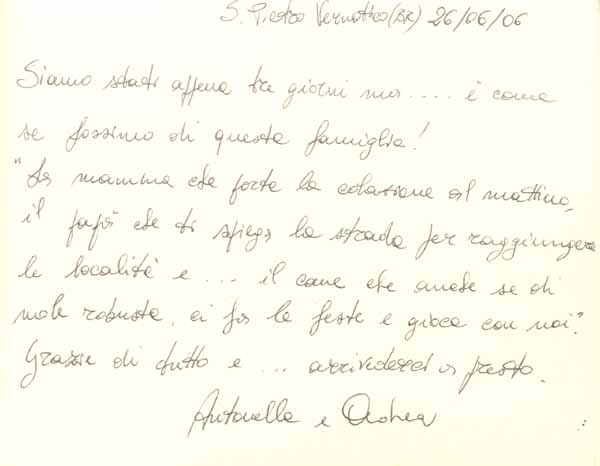 S. Pietro Vernotico (BR) 26/06/06
Siamo stati appena tre giorni ma.... è come
se fossimo di questa famiglia!
"La mamma che porta la colazione al mattino,
il papà che ti spiega la strada per raggiungere
le località e... il cane che anche se di
mole robusta, ci fa le feste e gioca con noi".
Grazie di tutto e... arrivederci a presto.
Antonella e Andrea